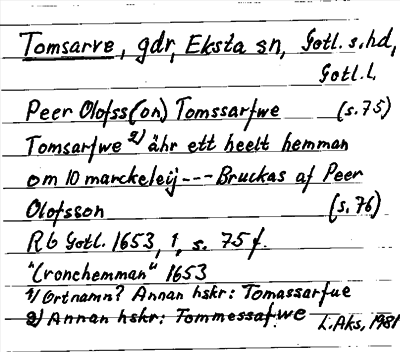 Tomsarve, gdr, Eksta sn, Gotl. s. hd,
Gotl. l.
Peer Olofss(on) Tomssarfwe (s. 75)
Tomsarfwe 2) ähr ett heelt hemman
om 10 marckeleij --- Bruckas af Peer
Olofsson (s. 76)
Rb Gotl. 1653, 1, s. 75 f.
"Cronehemman" 1653
1) Ortnamn? Annan hskr: Tomassarfue
2) Annan hskr: Tommessafwe L. Aks, 1981